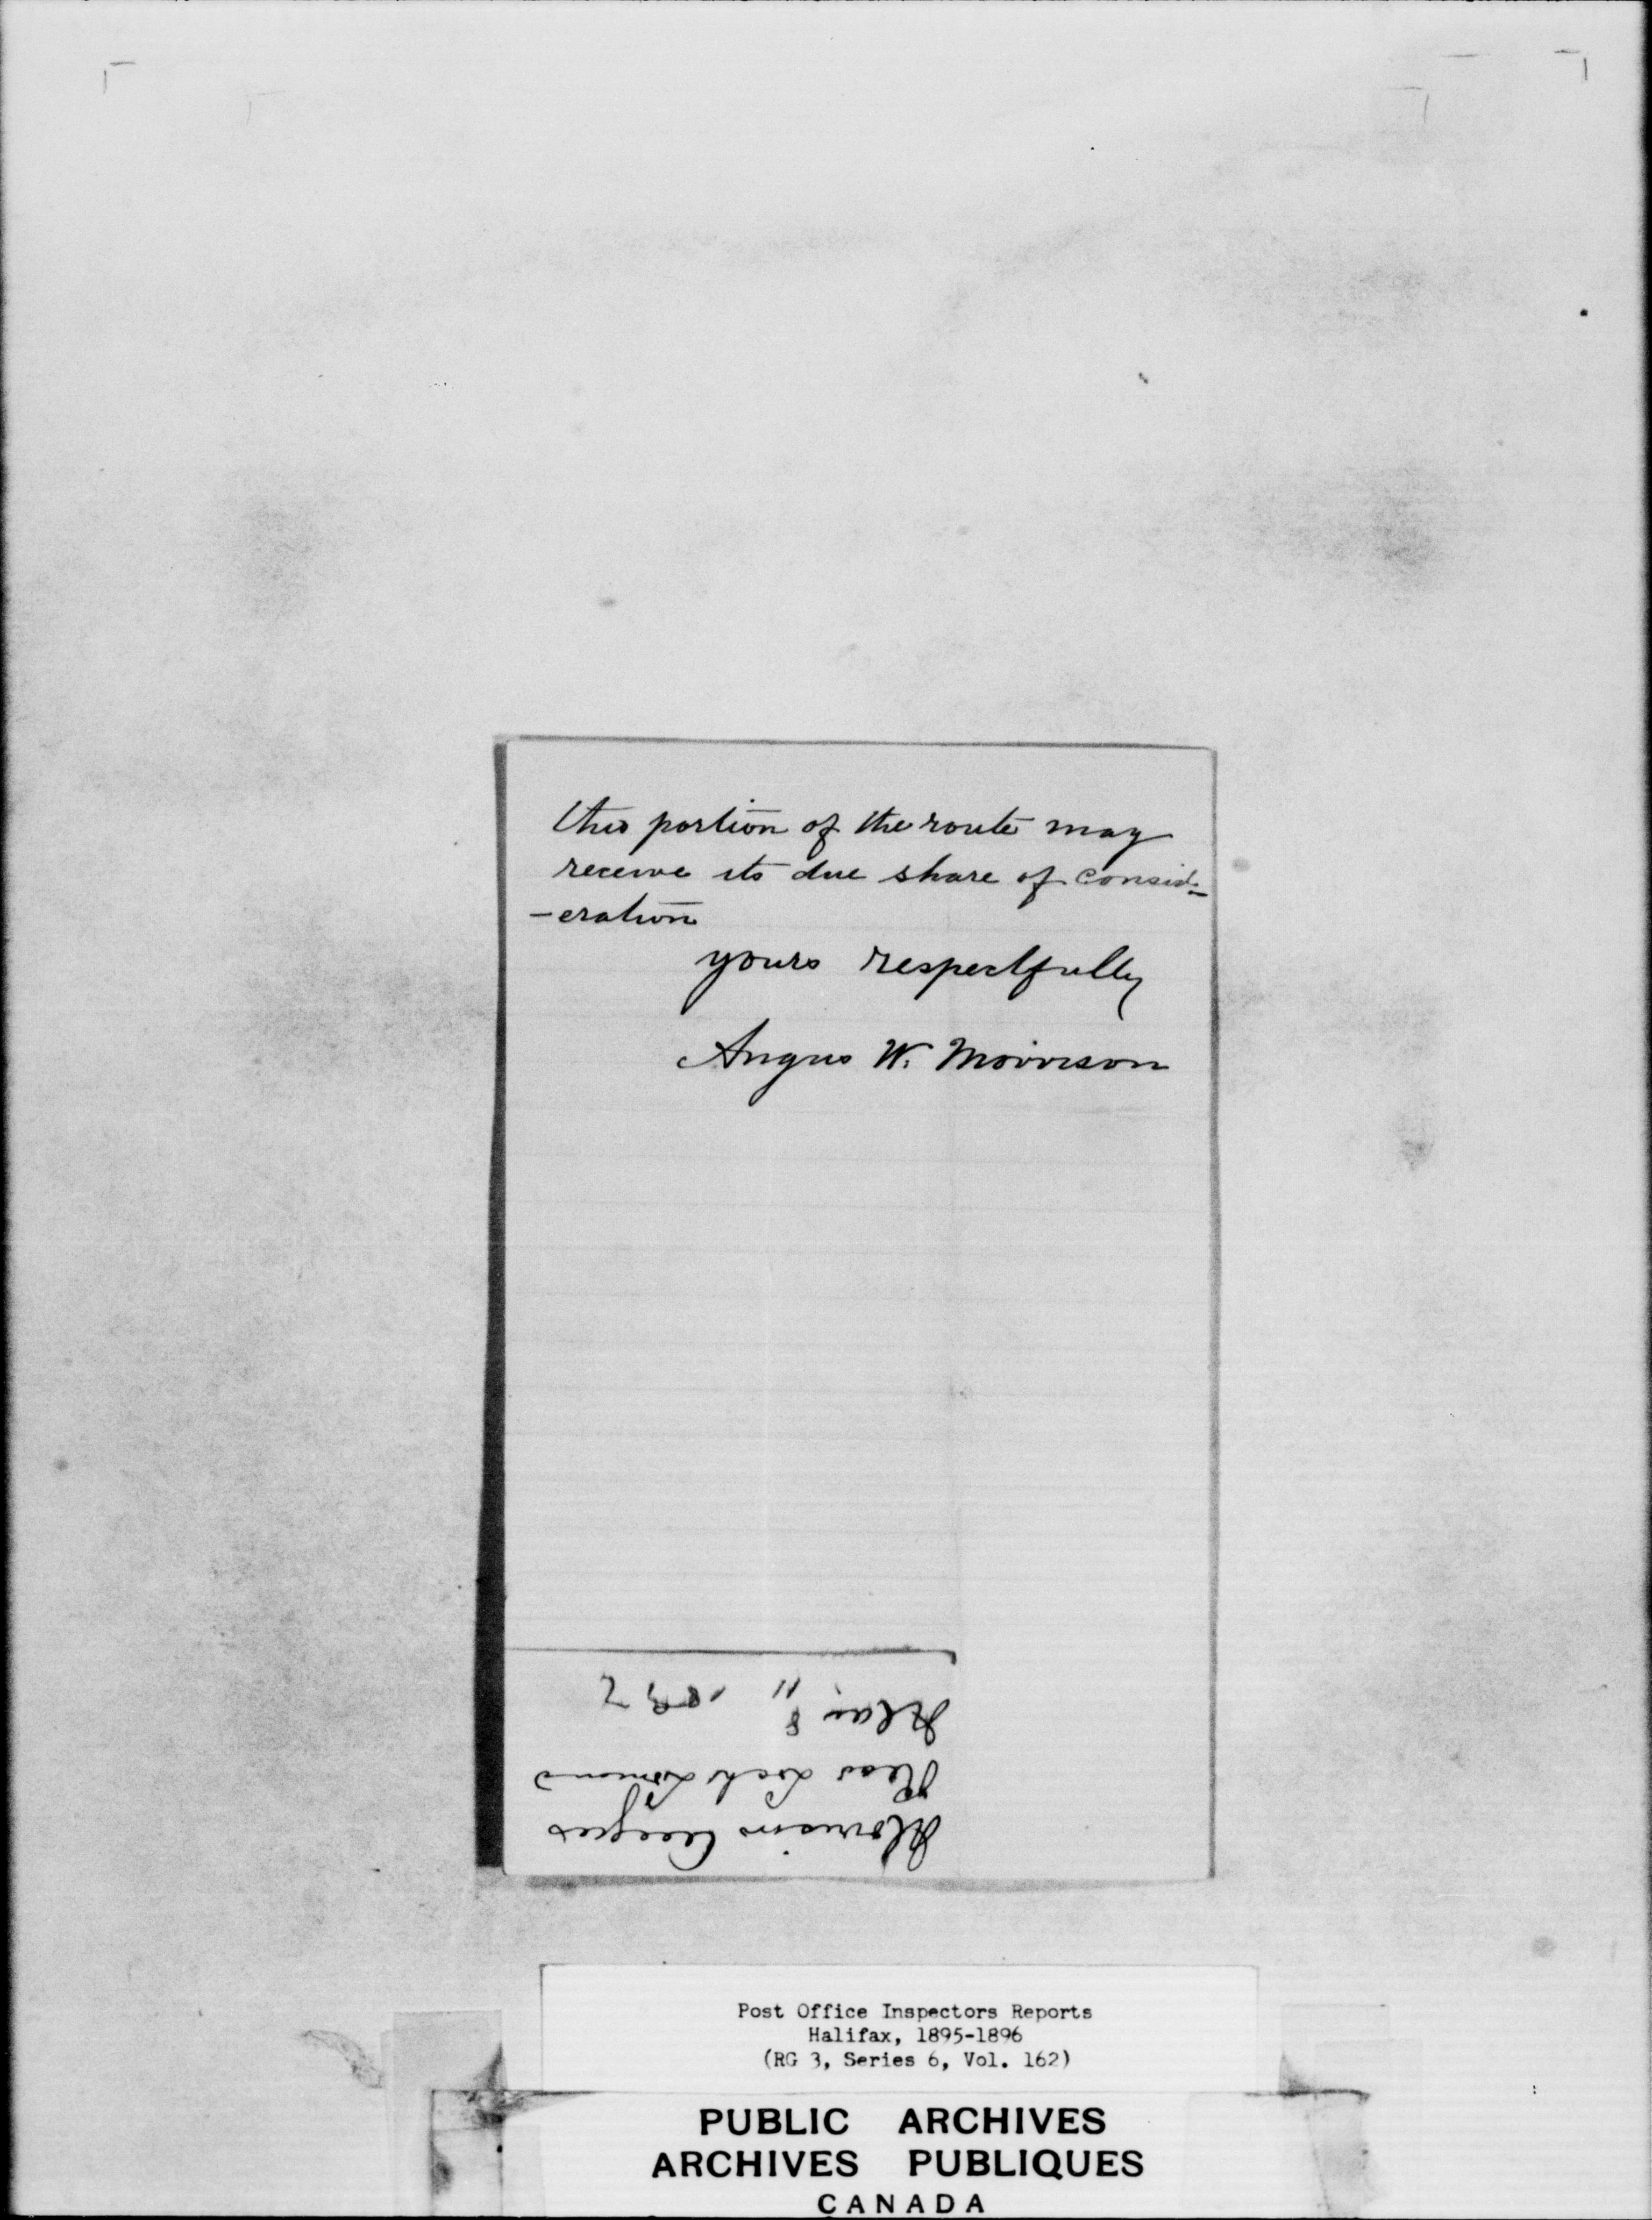 this portion of the route may
receive its due share of consid-
-eration
yours respectfully
Angus W. Morrison
Morrison Angus
Near Loch Lomond
Mar 8
Post Office Inspectors Reports
Halifax, 1895-1896
(RG 3, Series 6, Vol. 162)
PUBLIC ARCHIVES
ARCHIVES PUBLIQUES
CANADA